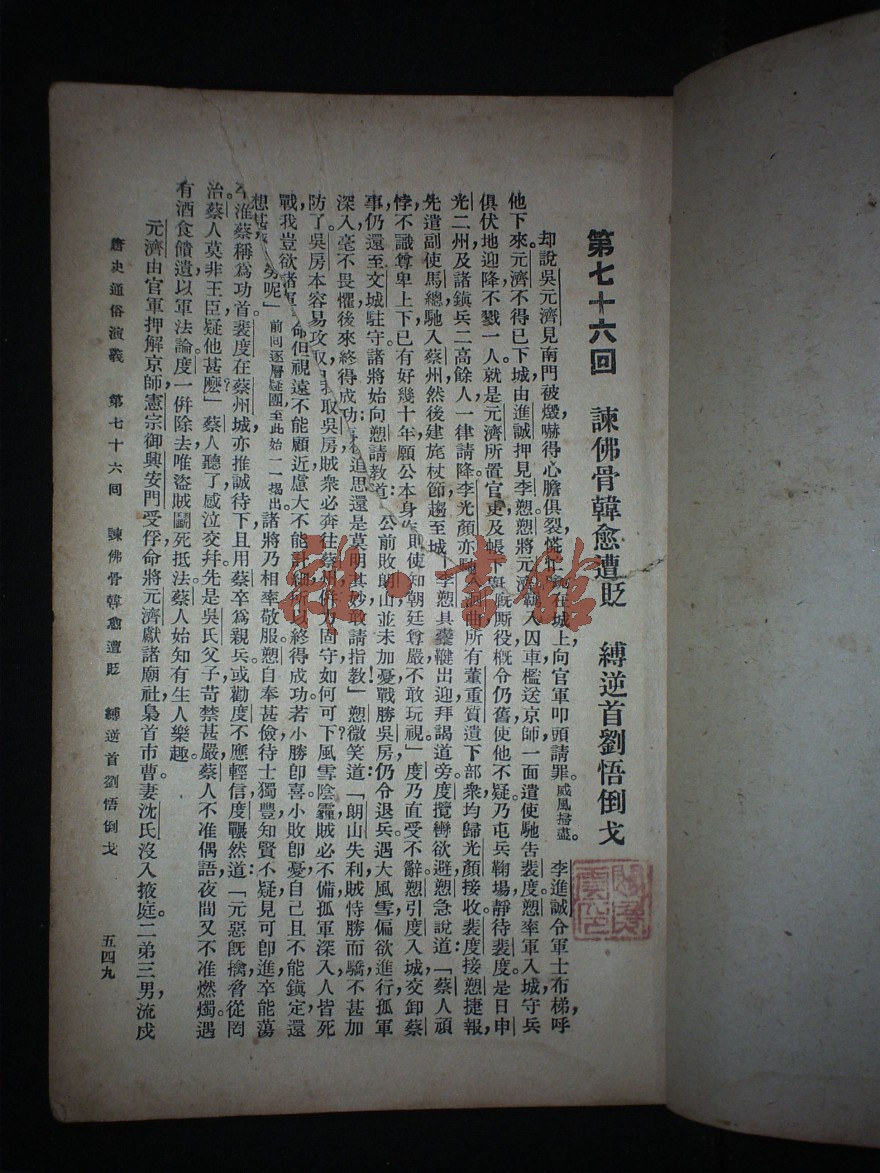 第七十六回 諫佛骨韓愈遭貶 縛逆首劉悟倒戈
却說吳元濟見南門被燬，嚇得心膽俱裂，慌忙 在城上，向官軍叩頭請罪。威風掃盡。李進誠令軍士布梯，呼
他下來。元濟不得已下城，由進誠押見李愬。愬將元濟 入囚車，檻送京師，一面遣使馳吿裴度。愬率軍入城，守兵
俱伏地迎降，不戮一人。就是元濟所置官吏，及帳下 廐厮役，槪令仍舊，使他不疑。乃屯兵鞠場，靜待裴度。是日申
光二州，及諸鎮兵二萬餘人，一律請降。李光顏亦馳入 曲，所有董重質遺下部衆，均歸光顏接收。裴度接愬捷報，
先遣副使馬總馳入蔡州，然後建旄杖節，趨至城 李愬具櫜鞬出迎，拜謁道旁。度攬轡欲避，愬急說道：「蔡人頑
悖，不識尊卑上下，已有好幾十年，願公本身 則，使知朝廷尊嚴，不敢玩視」度乃直受不辭。愬引度入城，交卸蔡
事，仍還至文城駐守。諸將始向愬請敎道： 公前敗朗山，並未加憂，戰勝吳房，仍令退兵，遇大風雪，偏欲進行，孤軍
深入，毫不畏懼，後來終得成功， 追思，還是莫明其妙，敢請指敎！」愬微笑道：「朗山失利，賊恃勝而驕，不甚加
防了。吳房本容易攻取， 我取吳房，賊衆必奔往蔡州，併力固守，如何可下？風雪陰霾，賊必不備，孤軍深入，人皆死
戰，我豈欲諸軍 命，但視遠不能顧近，慮大不能計細，所以終得成功。若小勝卽喜，小敗卽憂，自己且不能鎮定，還
想甚 勞呢」前回逐層疑團至此始一一揭出。諸將乃相率敬服。愬自奉甚儉，待士獨豐，知賢不疑，見可卽進，卒能蕩
平淮蔡，稱爲功首。裴度在蔡州城，亦推誠待下，且用蔡卒爲親兵，或勸度不應輕信，度囅然道：「元惡旣擒，脅從罔
治，蔡人莫非王臣，疑他甚麽？」蔡人聽了，感泣交幷。先是吳氏父子，苛禁甚嚴，蔡人不准偶語，夜間又不准燃燭，遇
有酒食饋遺，以軍法論，度一倂除去，唯盜賊鬭死抵法，蔡人始知有生人樂趣。
元濟由官軍押解京師，憲宗御興安門受俘，命將元濟獻諸廟社，梟首市曹。妻沈氏沒入掖庭。二弟三男流戍
唐史通俗演義 第七十六回 諫佛骨韓愈遭貶 縛逆首劉悟倒戈 五四九